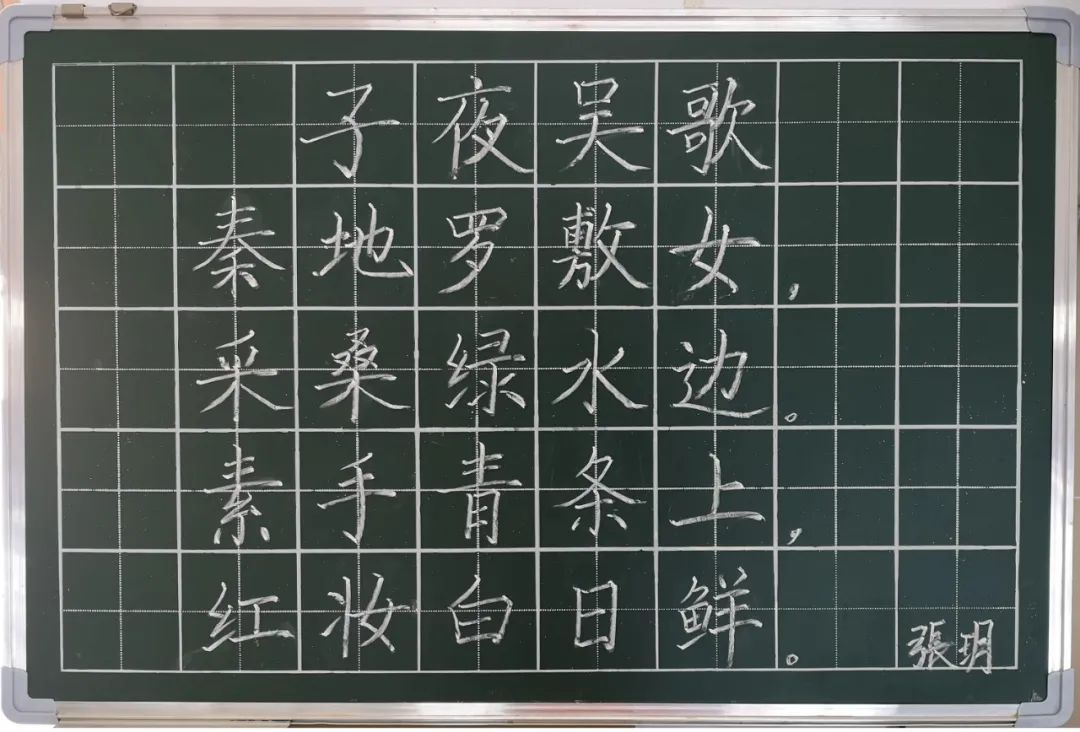 子夜吴歌
秦地罗敷女，
采桑绿水边。
素手青条上，
红妆白日鲜。
張玥